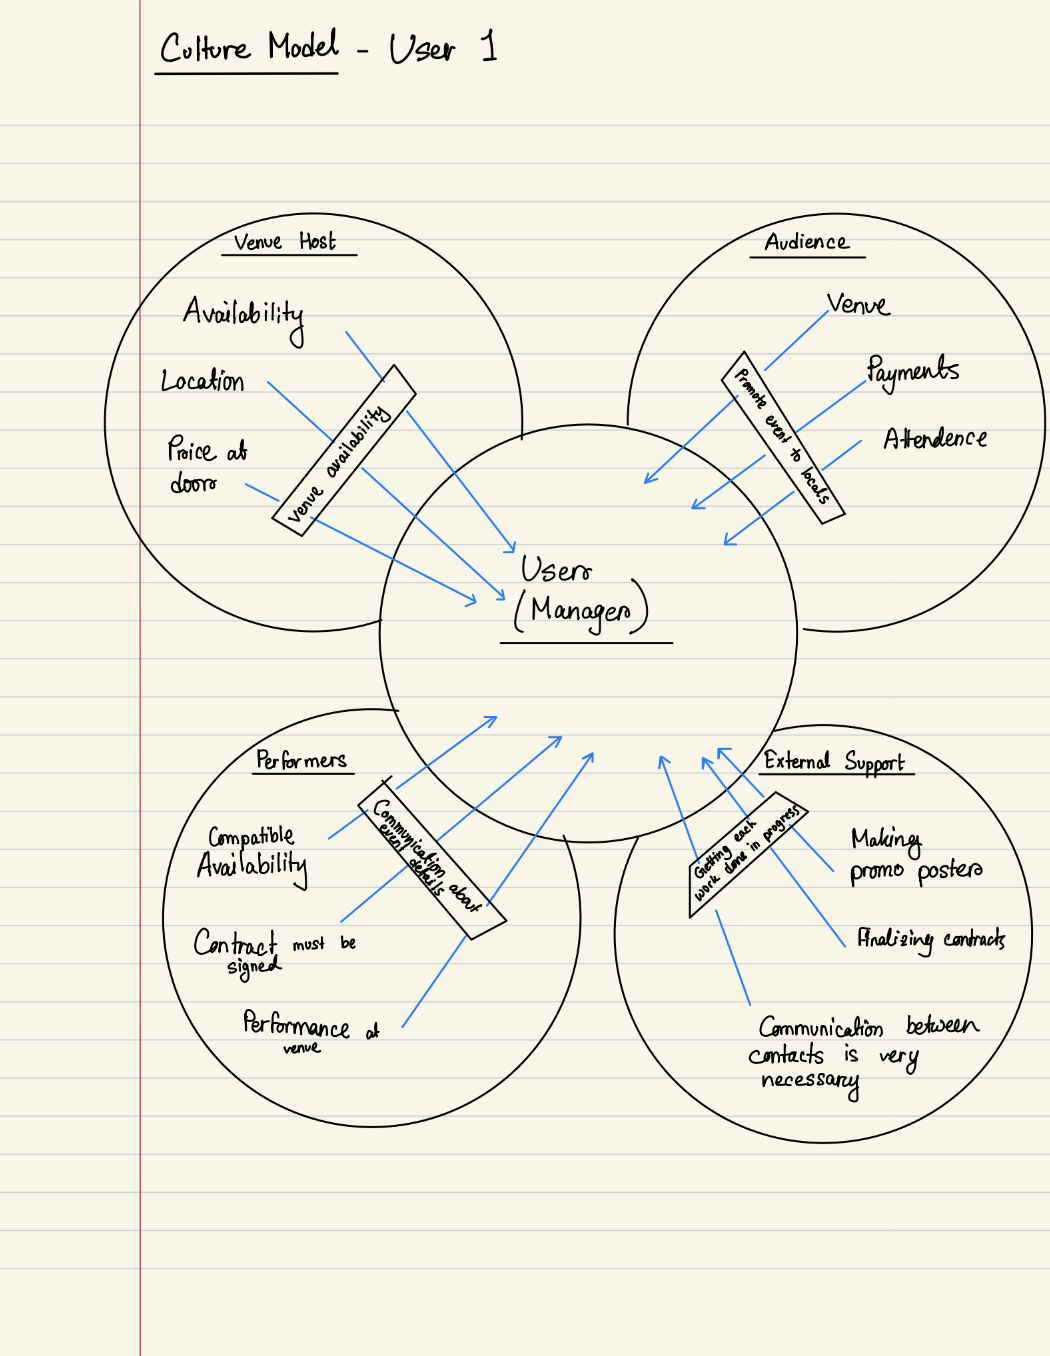 Culture Model - User 1
Venue Host
Availability
Location
Price at
door
Venue availability
Audience
Venue
Payments
Attendence
Promote event to locals
User
(Manager)
Performers
Compatible
Availability
Contract must be
signed
Performance at
venue
Communication about
event details
External Support
Making
promo posters
Finalizing contracts
Communication between
contacts is very
necessary
Getting each
work done in progress